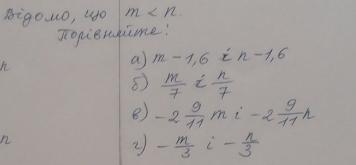 Відомо, що m < n.
Порівняйте:
а) m - 1,6 і n - 1,6
б) m/7 і n/7
в) -2 9/11 m і -2 9/11 n
г) - m/3 і - n/3
n
n